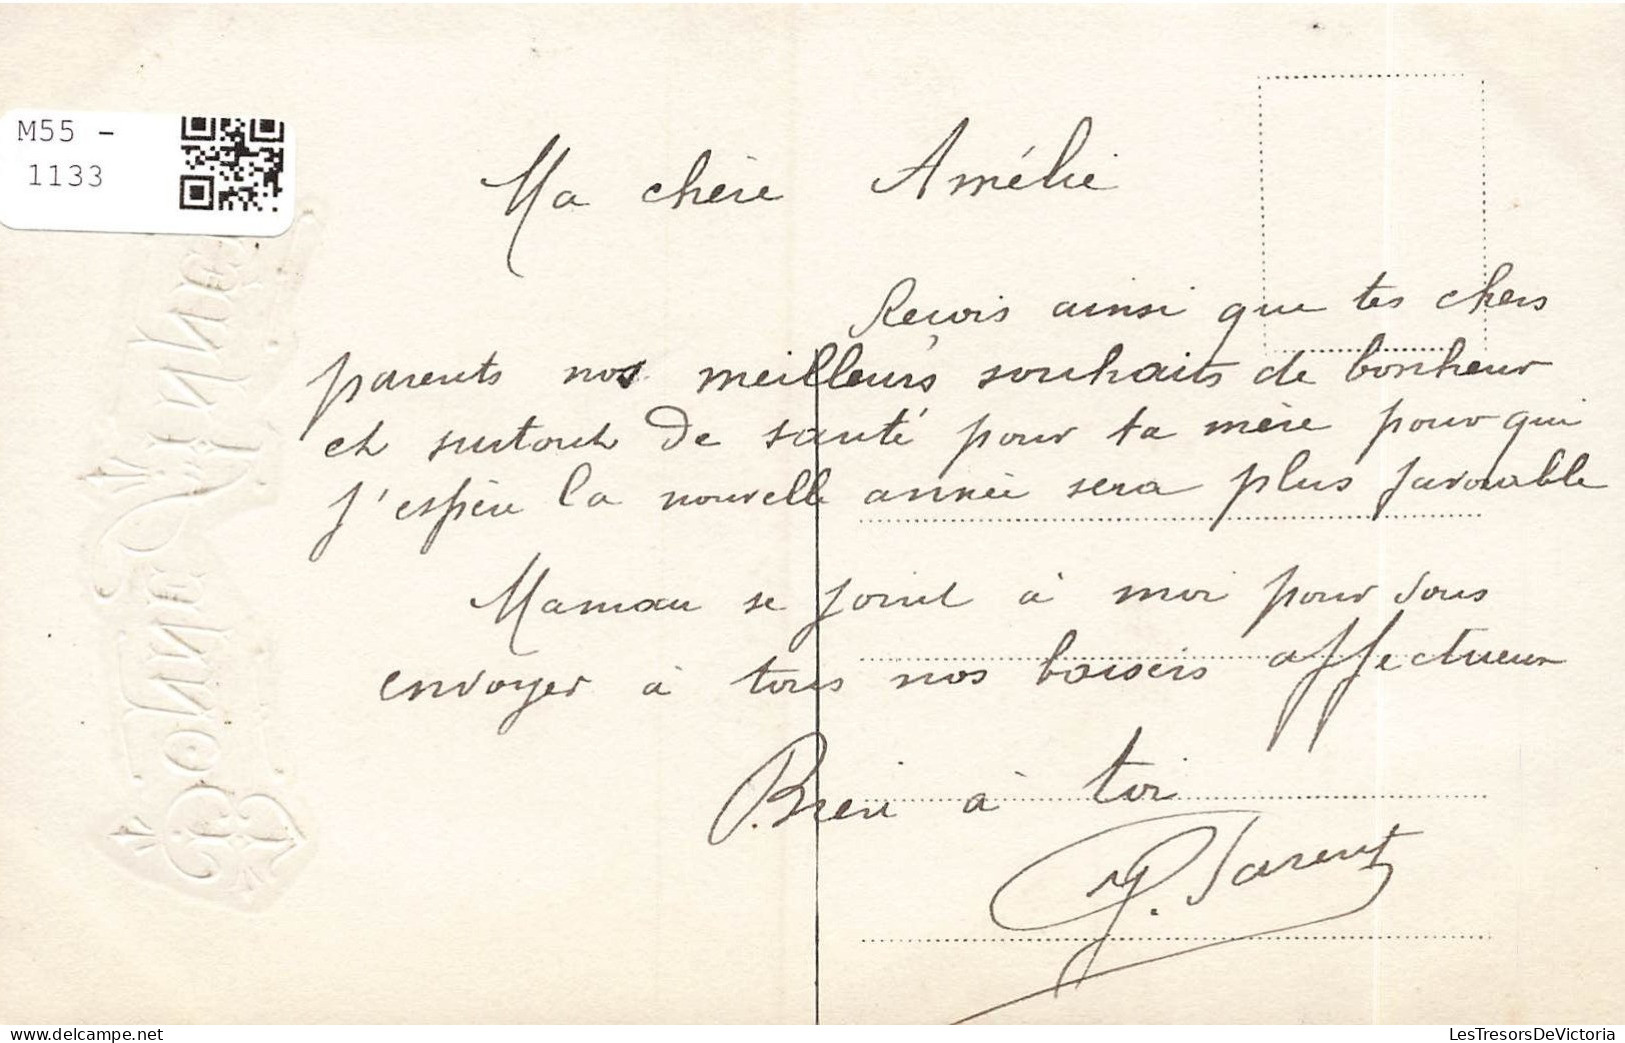 M55 -
1133
Ma chère Amélie
Reçois ainsi que tes chers
parents nos meilleurs souhaits de bonheur
et surtout de santé pour ta mère pour qui
j'espère la nouvelle année sera plus favorable
Maman se joint à moi pour vous
envoyer à tous nos baisers affectueux
Bien à toi
Parent
Bonne Année
LesTresorsDeVictoria